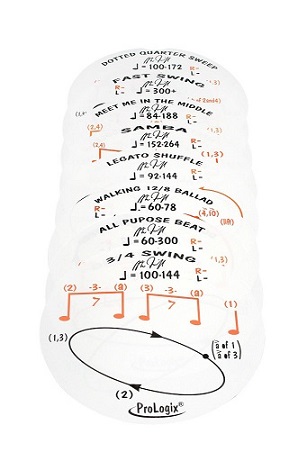 DOTTED QUARTER SWEEP
♩=100-172 R- L-
FAST SWING
♩=300+ R- L-
MEET ME IN THE MIDDLE
♩=84-188 R- L-
(2,4)
SAMBA
♩=152-264
(2,4) (1,3)
LEGATO SHUFFLE
♩=92-144 R- L-
WALKING 12/8 BALLAD
R- L- ♩=60-78 (4,10)
ALL PUPOSE BEAT
♩=60-300 R- L-
3/4 SWING
♩=100-144 R- L-
(2) -3- (a) (3) -3- (a) (1)
>   >
(1,3)
("a" of 1
"a" of 3)
(2)
ProLogix®